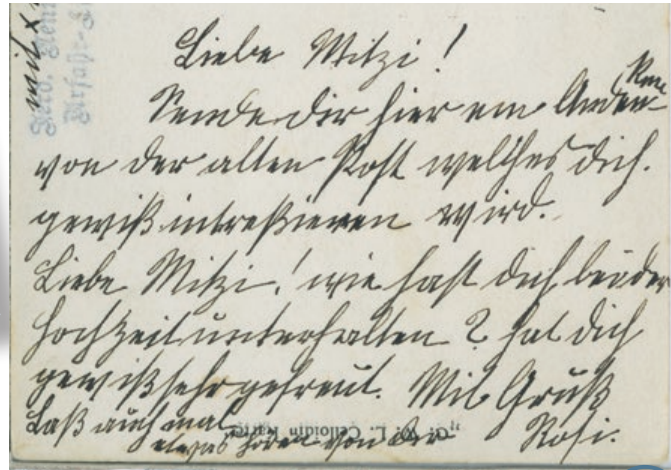 mit x
Ferd. Hen
Urfahr-L
Liebe Mitzi!
Sende dir hier ein Anden-
ken
von der alten Post welches dich.
gewiß intreßieren wird.
Liebe Mitzi! wie hast dich bei der
Hochzeit unterhalten? hat dich
gewiß sehr gefreut. Mit Gruß
Laß auch mal Rosi.
etwas hören von dir
L. Celloidin Karte